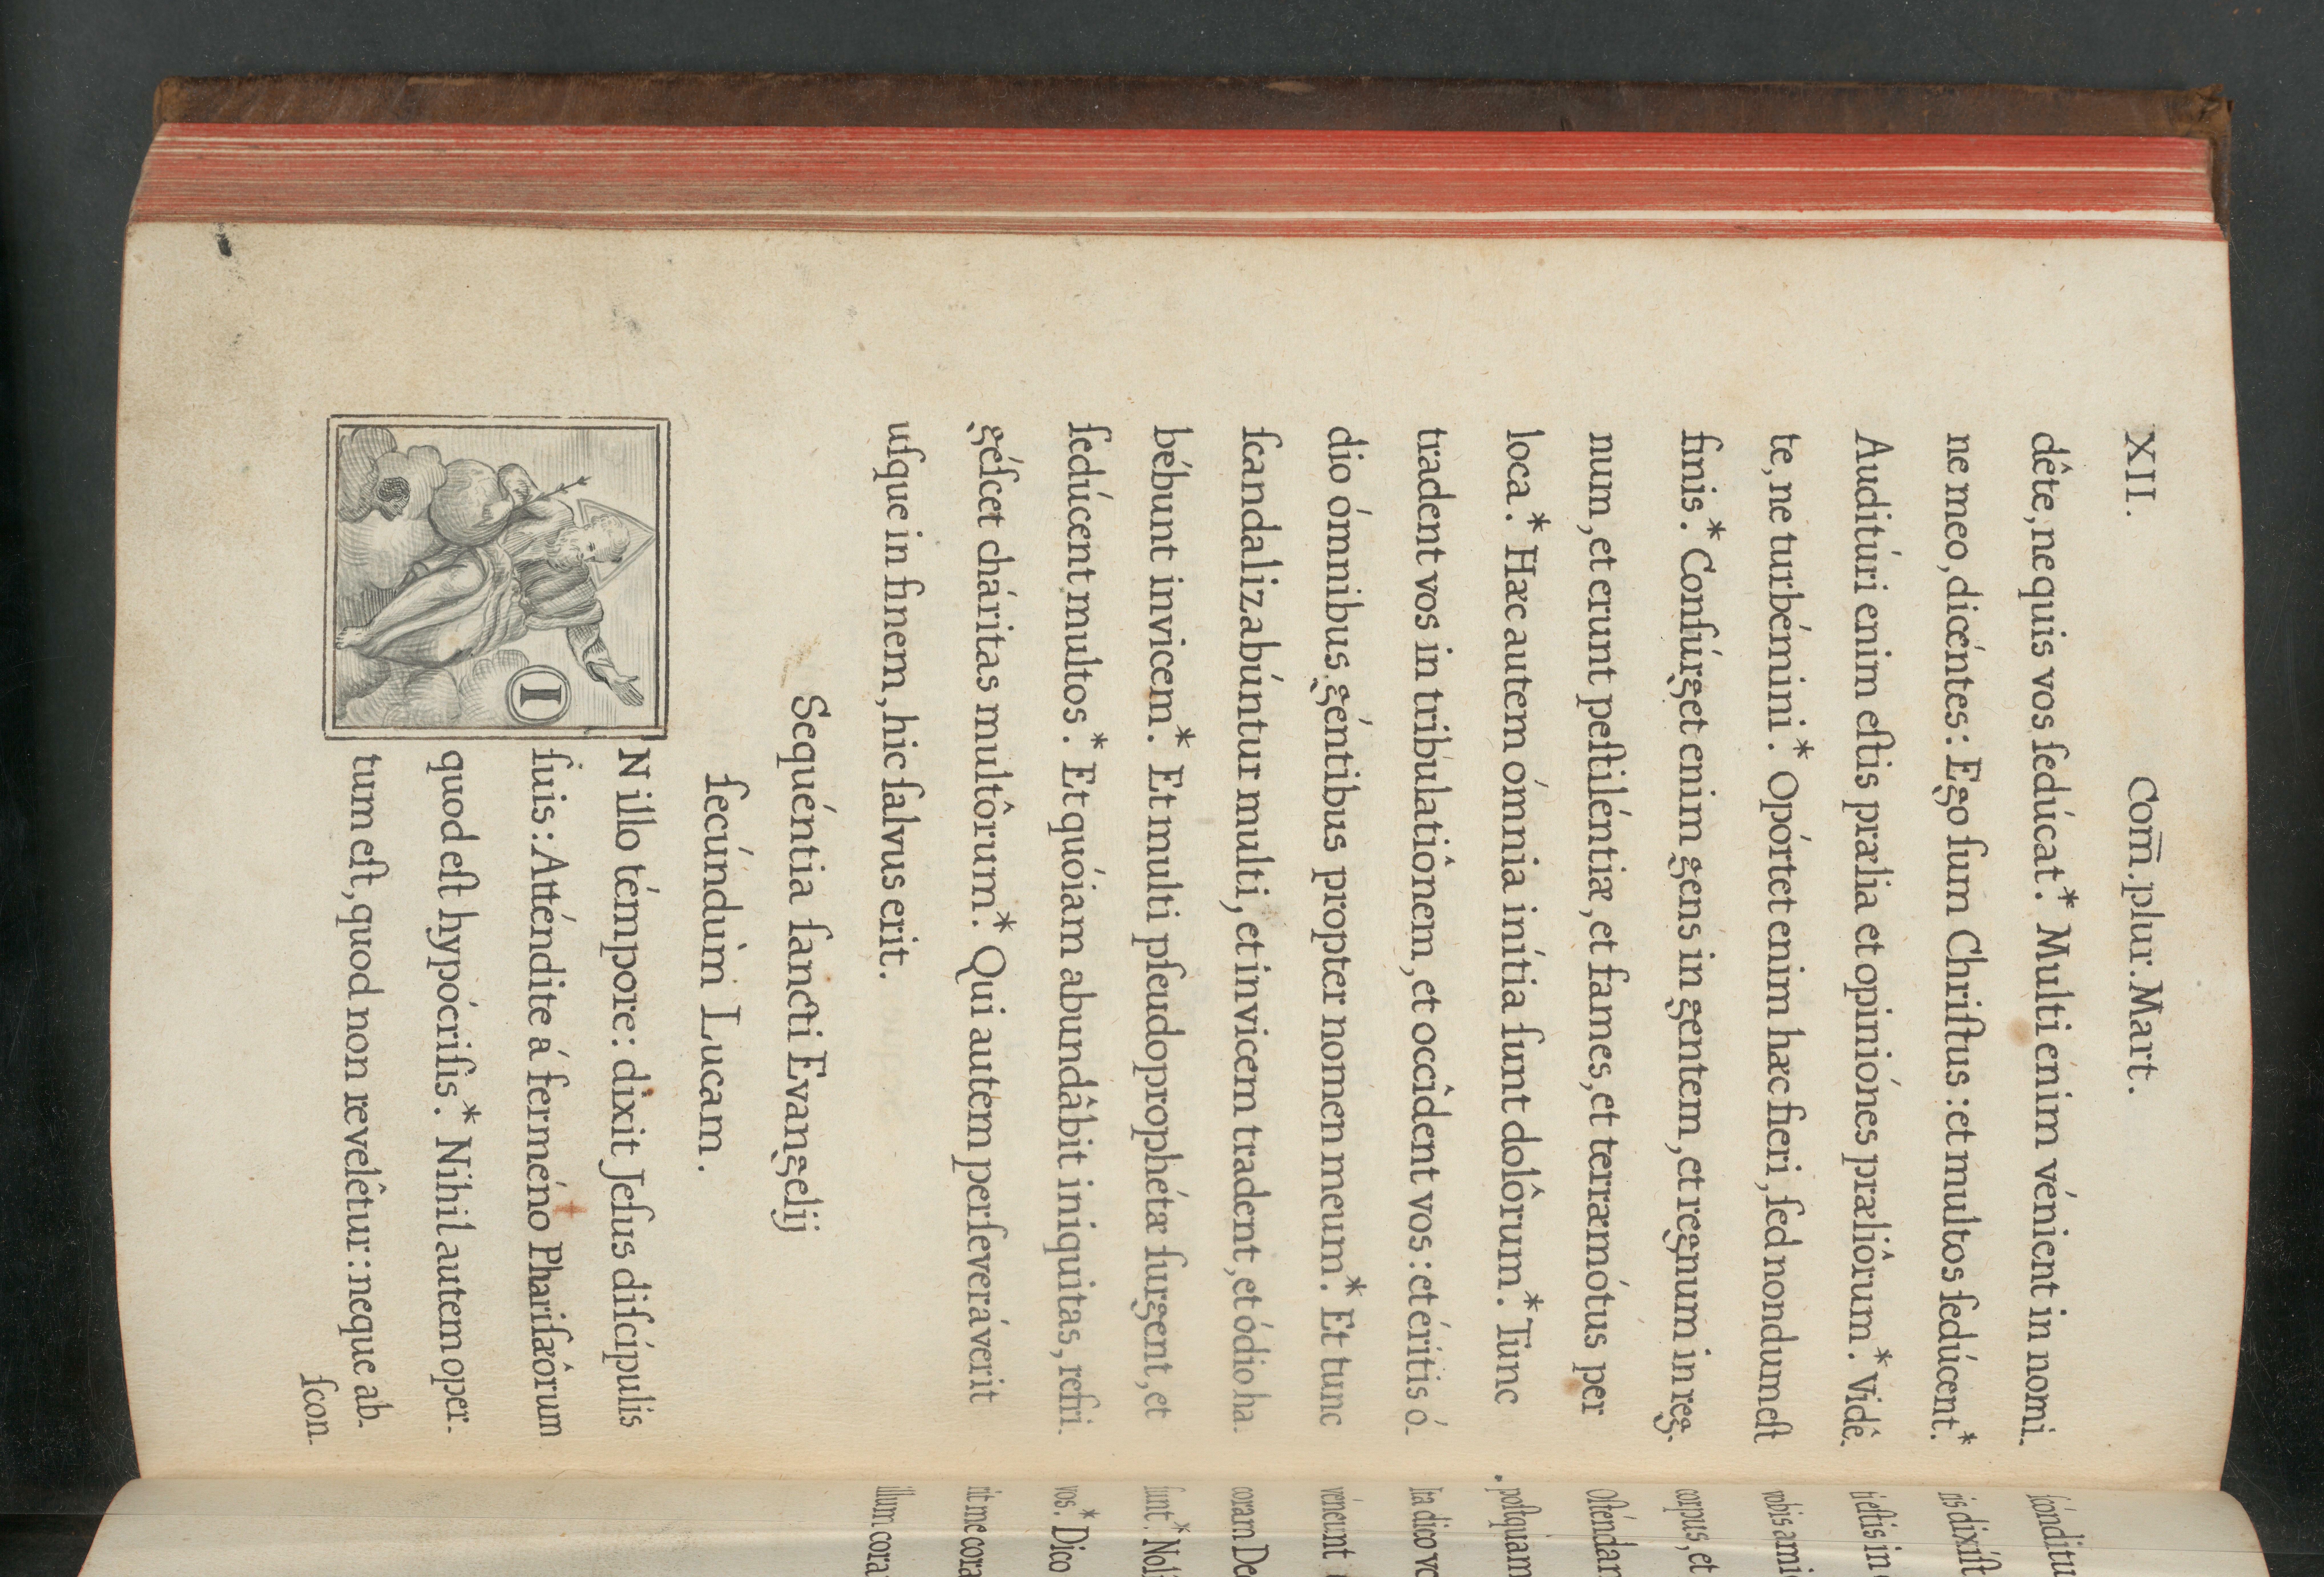 XII. Com̅. plur. Mart.
dête, ne quis vos ſedúcat.* Multi énim vénient in nomi-
ne meo, dicéntes: Ego ſum Chriſtus: et multos ſedúcent.*
Auditúri enim eſtis prælia et opiniónes præliôrum.* Vidê-
te, ne turbémini.* Opórtet enim hæc fieri, ſed nondum eſt
finis.* Conſúrget enim gens in gentem, et regnum in reg-
num, et erunt peſtiléntiæ, et fames, et terræmótus per
loca.* Hæc autem ómnia inítia ſunt dolôrum.* Tunc
tradent vos in tribulatiônem, et occîdent vos: et éritis ó-
dio ómnibus géntibus propter nomen meum.* Et tunc
ſcandalizabúntur multi, et invicem tradent, et ódio ha-
bébunt invicem.* Et multi pſeudoprophétæ ſurgent, et
ſedúcent multos.* Et quóiam abundâbit iniquitas, refri-
géſcet cháritas multôrum.* Qui autem perſeveráverit
uſque in finem, hic ſalvus erit.
Sequéntia ſancti Evangelij
ſecúndum Lucam.
IN illo témpore: dixit Jeſus diſcípulis
ſuis: Atténdite á ferméno Phariſæôrum
quod eſt hypócriſis.* Nihil autem oper-
tum eſt, quod non revelêtur: neque ab-
ſcon-
ſcónditu
ris dixíſt
ti eſtis in
vobis ami
corpus, et
Oſténdam
poſtquam
lia dico vo
véneunt
coram De
ſunt.* Nol
vos.* Dico
rit me cora
illum cora